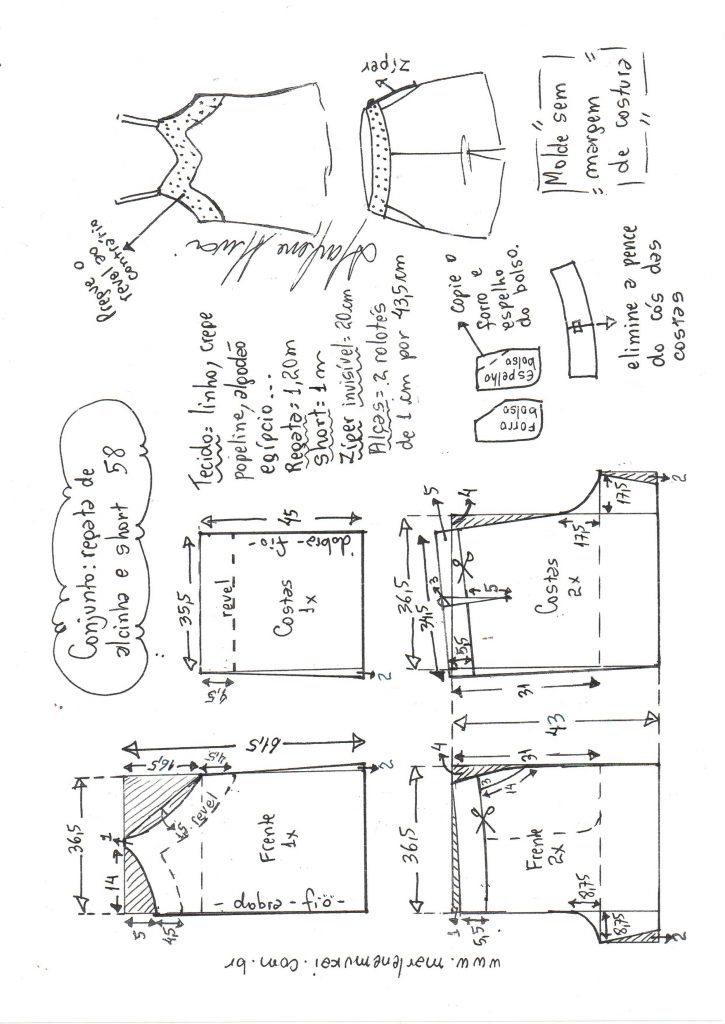 Conjunto: regata de
alcinha e short 58
Tecido= linho, crepe
popeline, algodão
egípcio...
Regata= 1,20m
Short= 1m
Zíper invisível= 20cm
Alças= 2 rolotés
de 1cm por 43,5cm
Pregue o
revel ao
contrário
Marlene Mukai
zíper
Molde sem
= margem =
de costura
copie o
forro e
espelho
do bolso.
Espelho
bolso
Forro
bolso
elimine a pence
do cós das
costas
36,5
14
1
5
4,5
16,5
4,5
61,5
15
revel
Frente
1x
- dobra - fio -
2
35,5
45
4,5
revel
Costas
1x
dobra - fio -
2
36,5
4
1
5,5
3
14
31
43
Frente
2x
8,75
8,75
2
36,5
34,5
5
4
3
5
5,5
31
Costas
2x
17,5
17,5
2
www.marlenemukai.com.br